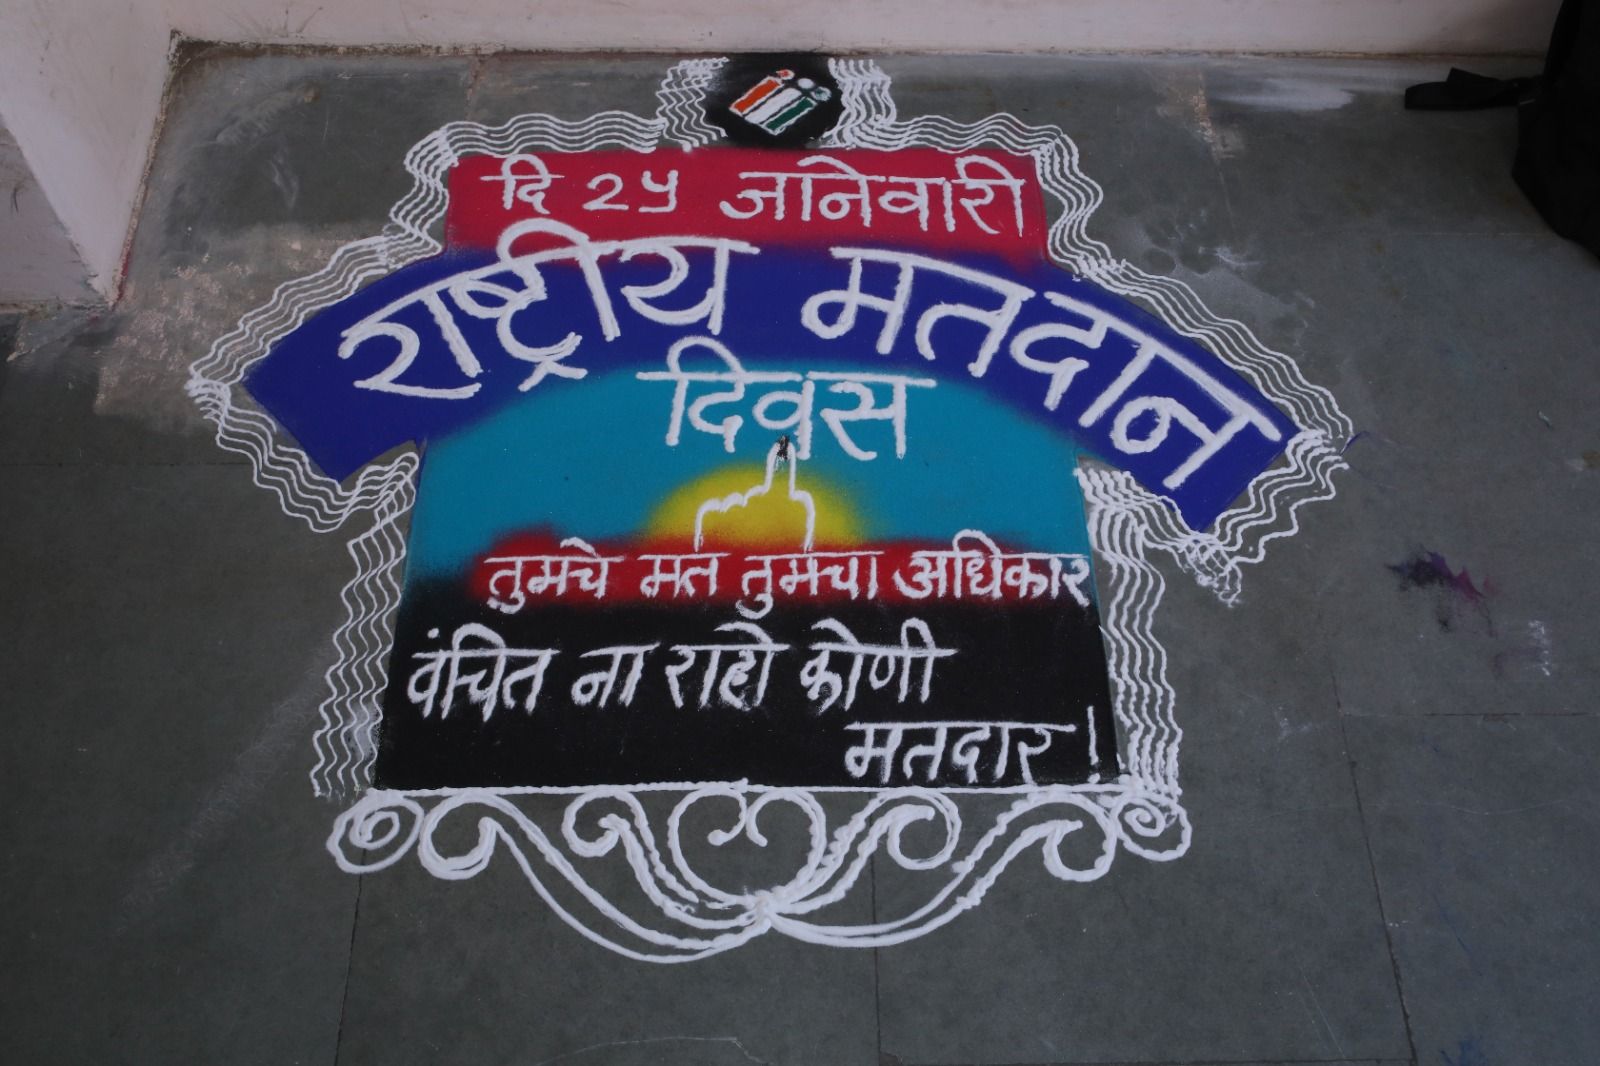 दि २५ जानेवारी
राष्ट्रीय मतदान
दिवस
तुमचे मत तुमचा अधिकार
वंचित ना राहो कोणी
मतदार!